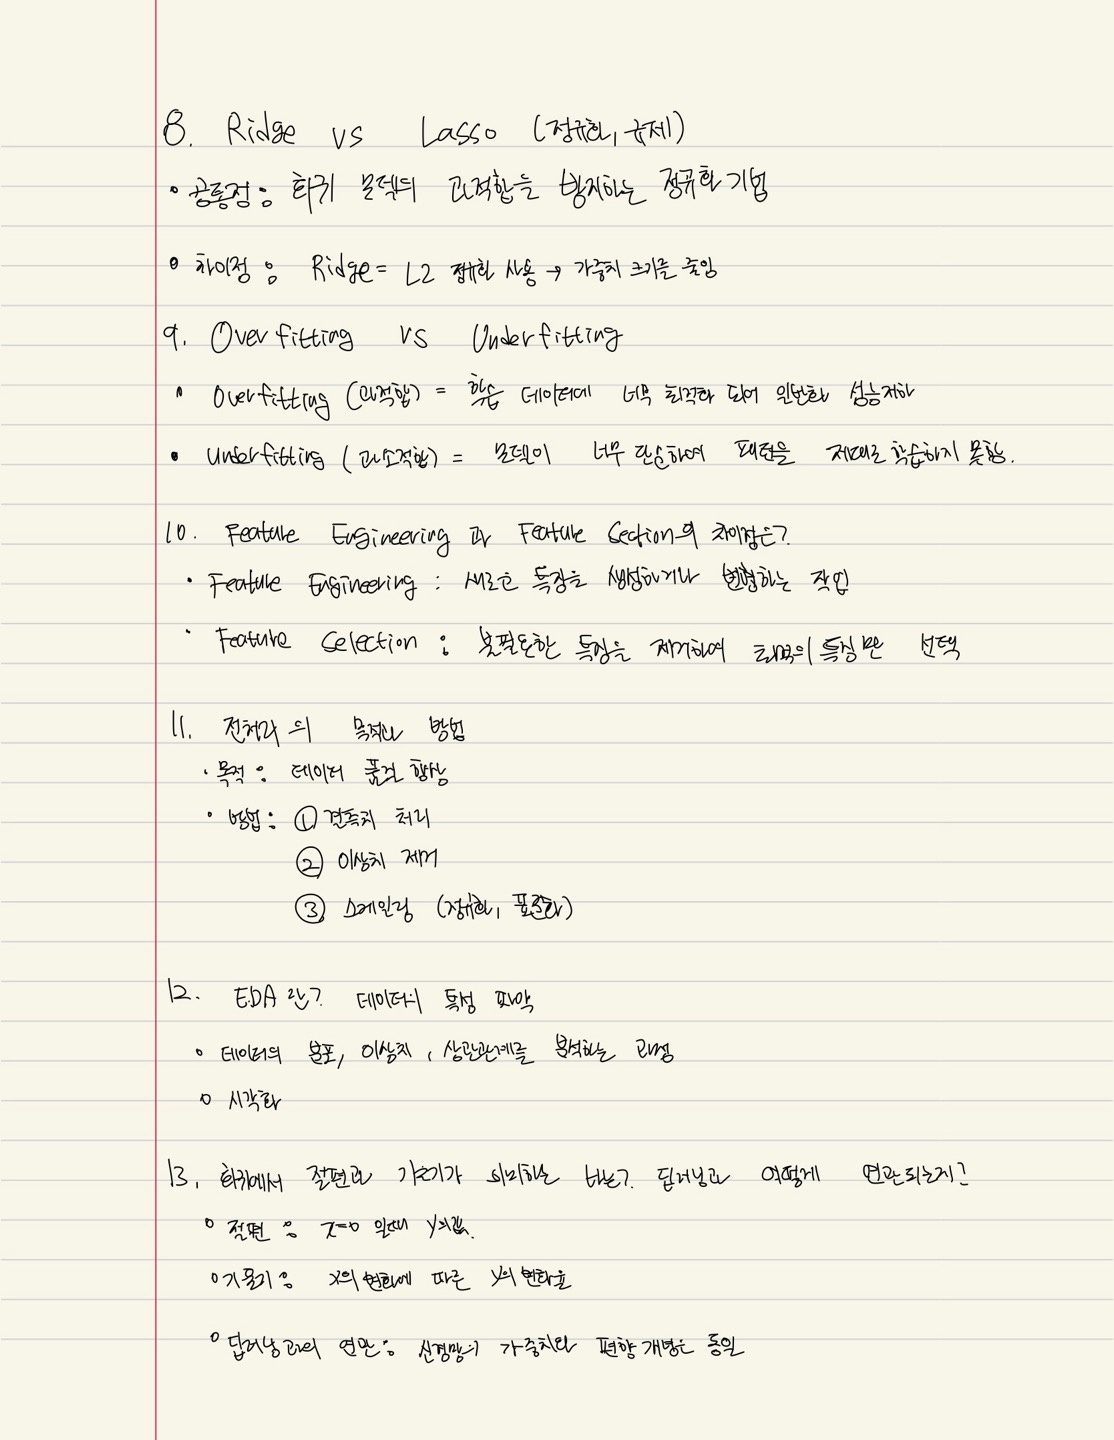 8. Ridge vs Lasso (정규화, 규제)
• 공통점 : 회귀 모델의 과적합을 방지하는 정규화 기법
• 차이점 : Ridge = L2 정규화 사용 → 가중치 크기를 줄임
9. Overfitting vs Underfitting
• Overfitting (과적합) = 학습 데이터에 너무 최적화 되어 일반화 성능저하
• Underfitting (과소적합) = 모델이 너무 단순하여 패턴을 제대로 학습하지 못함.
10. Feature Engineering 과 Feature Section의 차이점은?
• Feature Engineering : 새로운 특징을 생성하거나 변형하는 작업
• Feature Selection : 불필요한 특징을 제거하여 최적의 특징만 선택
11. 전처리의 목적과 방법
• 목적 : 데이터 품질 향상
• 방법 : ① 결측치 처리
② 이상치 제거
③ 스케일링 (정규화, 표준화)
12. EDA란? 데이터의 특성 파악
• 데이터의 분포, 이상치, 상관관계를 분석하는 과정
• 시각화
13. 회귀에서 절편과 기울기가 의미하는 바는? 딥러닝과 어떻게 연관되는지?
• 절편 : x=0 일때 y의값.
• 기울기 : x의 변화에 따른 y의 변화율
• 딥러닝과의 연관 : 신경망의 가중치와 편향 개념은 동일